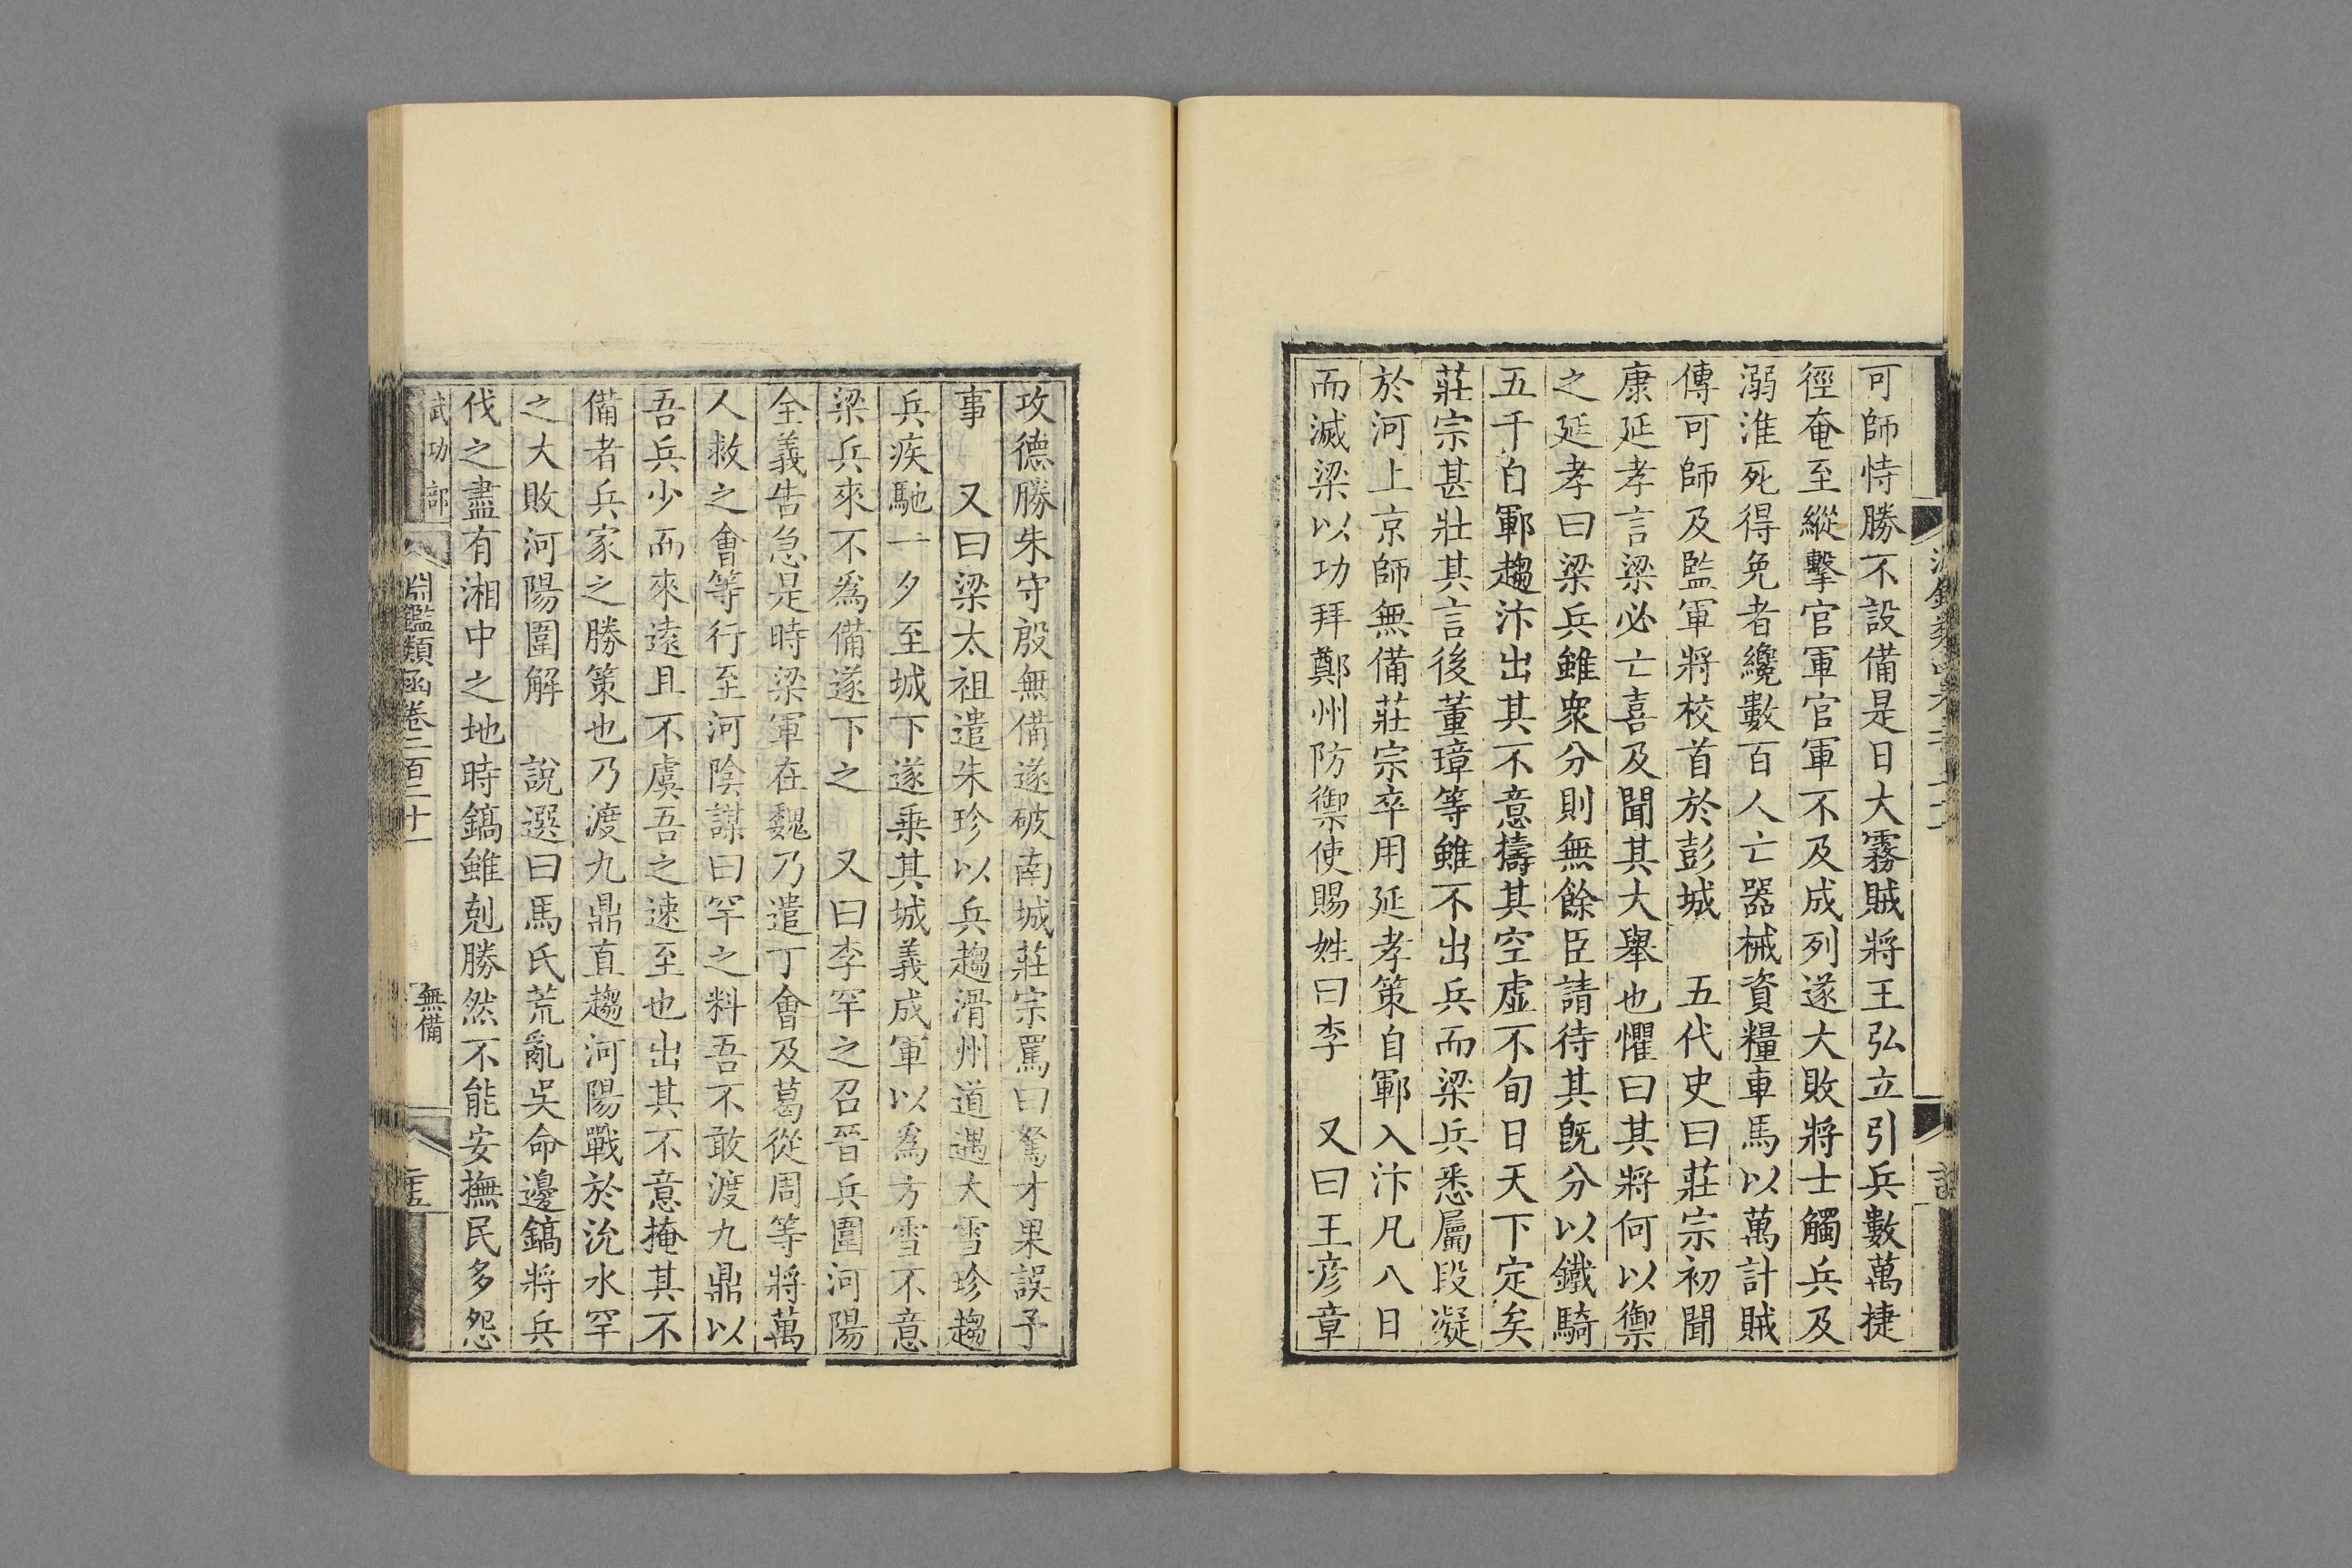 可師恃勝不設備是日大霧賊將王弘立引兵數萬捷
徑奄至縱擊官軍官軍不及成列遂大敗將士觸兵及
溺淮死得免者纔數百人亡器械資糧車馬以萬計賊
傳可師及監軍將校首於彭城　五代史曰莊宗初聞
康延孝言梁必亡喜及聞其大舉也懼曰其將何以禦
之延孝曰梁兵雖衆分則無餘臣請待其旣分以鐵騎
五千自鄆趨汴出其不意擣其空虛不旬日天下定矣
莊宗甚壯其言後董璋等雖不出兵而梁兵悉屬段凝
於河上京師無備莊宗卒用延孝策自鄆入汴凡八日
而滅梁以功拜鄭州防禦使賜姓曰李　又曰王彦章
攻德勝朱守殷無備遂破南城莊宗罵曰駑才果誤予
事　又曰梁太祖遣朱珍以兵趨滑州道遇大雪珍趨
兵疾馳一夕至城下遂乗其城義成軍以爲方雪不意
梁兵來不爲備遂下之　又曰李罕之召晉兵圍河陽
全義告急是時梁軍在魏乃遣丁會及葛從周等將萬
人救之會等行至河陰謀曰罕之料吾不敢渡九鼎以
吾兵少而來遠且不虞吾之速至也出其不意掩其不
備者兵家之勝策也乃渡九鼎直趨河陽戰於沇水罕
之大敗河陽圍解　說選曰馬氏荒亂吳命邊鎬將兵
伐之盡有湘中之地時鎬雖剋勝然不能安撫民多怨
武功部
淵鑑類函卷二百二十一
無備